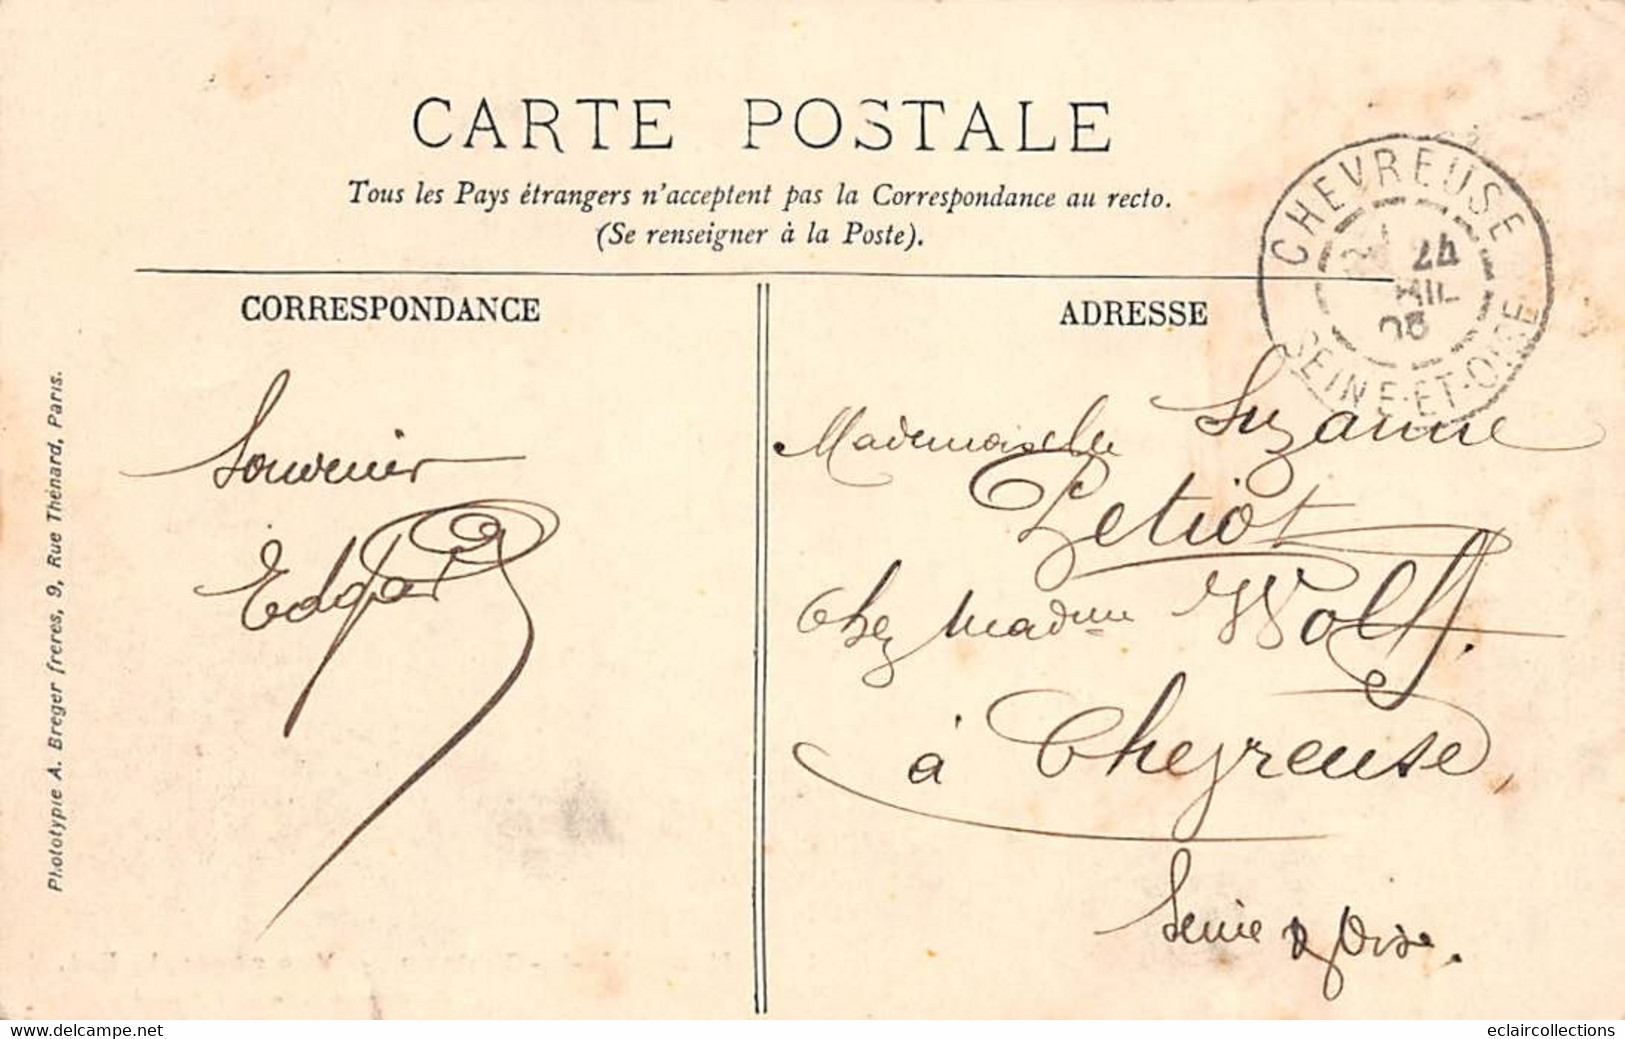 CARTE POSTALE
Tous les Pays étrangers n'acceptent pas la Correspondance au recto.
(Se renseigner à la Poste).
CHEVREUSE
24
JUIL
SEINE-ET-OISE
CORRESPONDANCE
ADRESSE
Souvenir
Edgar
Mademoiselle Suzanne
Petiot
Chez Madame Wolff.
à Chevreuse,
Seine & Oise.
Phototypie A. Breger freres, 9, Rue Thénard, Paris.
www.delcampe.net
eclaircollections